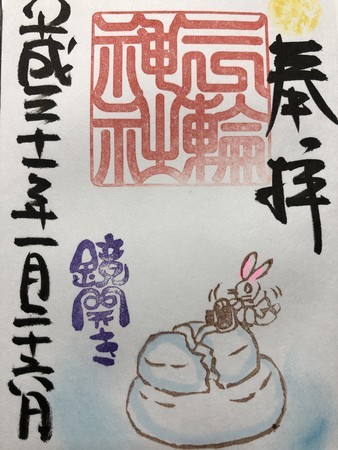 奉拝
三輪
神社
鏡開き
成三十一年一月二十六日